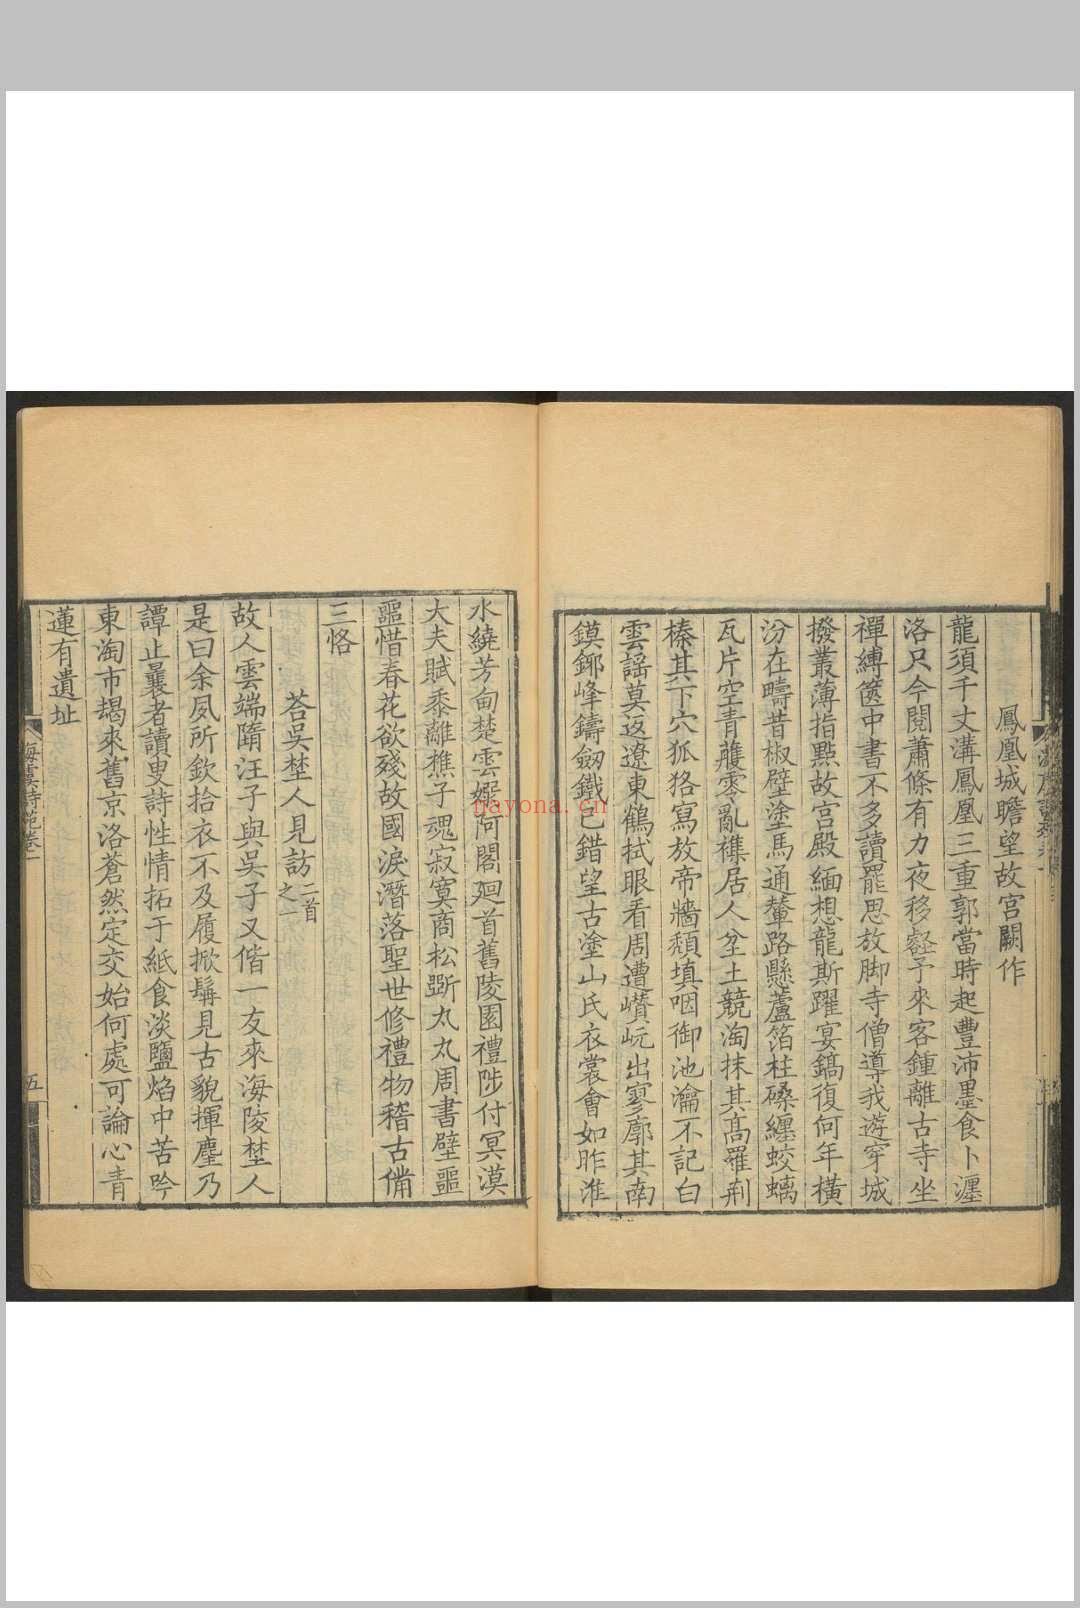 鳳凰城瞻望故宮闕作
龍須千丈溝鳳凰三重郭當時起豐沛墨食卜瀍
洛只今閱蕭條有力夜移壑予來客鍾離古寺坐
禪縛篋中書不多讀罷思放脚寺僧導我遊穿城
撥叢薄指點故宮殿緬想龍斯躍宴鎬復何年橫
汾在疇昔椒壁塗馬通輦路懸蘆箔柱磉纏蛟螭
瓦片空青雘零亂襍居人坌土競淘抹其高羅荆
榛其下穴狐狢寫放帝牆頹填咽御池瀹不記白
雲謡莫返遼東鶴拭眼看周遭巑岏出寥廓其南
鏌鎁峰鑄劔鐵已錯望古塗山氏衣裳會如昨淮
水繞芳甸楚雲嬽阿閣廻首舊陵園禮陟付冥漠
大夫賦黍離樵子魂寂寞商松斲丸丸周書壁噩
噩惜春花欲殘故國淚潛落聖世修禮物稽古備
三恪
荅吳埜人見訪二首之一
故人雲端隋汪子與吳子又偕一友來海陵埜人
是曰余夙所欽拾衣不及履掀髯見古貌揮麈乃
譚止曩者讀叟詩性情拓于紙食淡鹽焰中苦吟
東淘市朅來舊京洛蒼然定交始何處可論心青
蓮有遺址
海雲詩苑卷二
五
nayona.cn